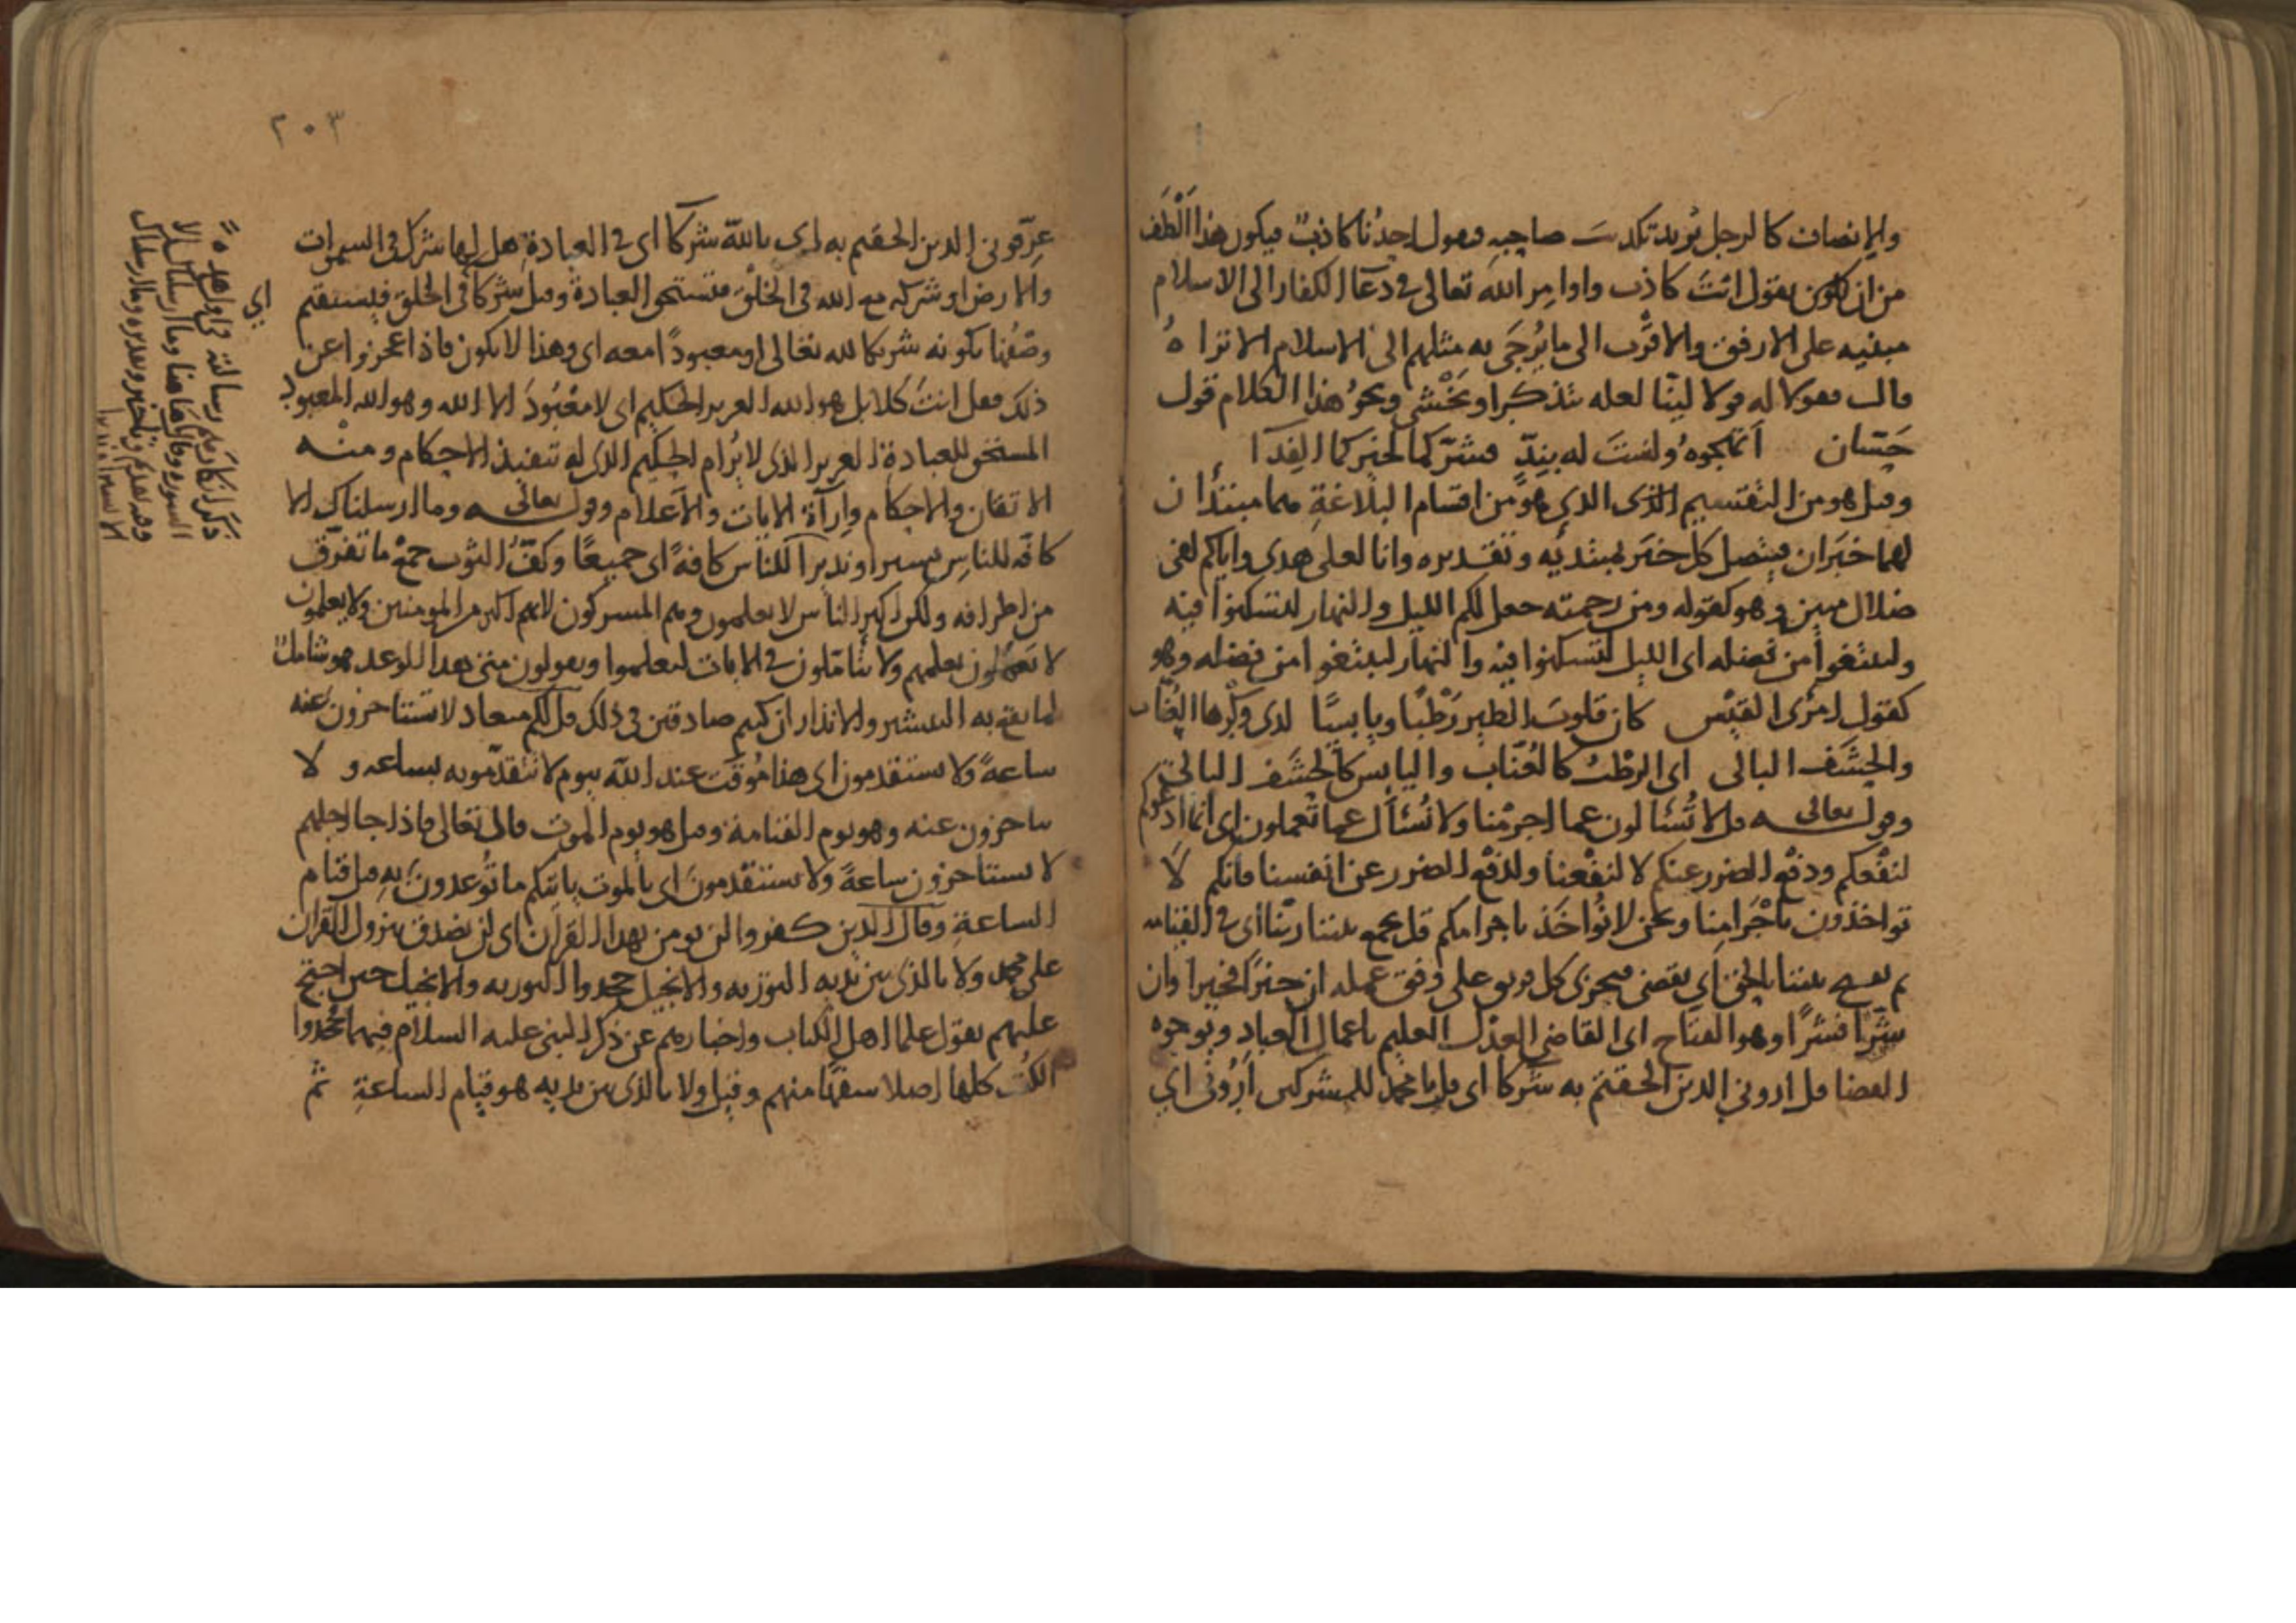 والإنصاف كالرجل يُريد تكذيبَ صاحبِهِ فيقول احدُنا كاذبٌ فيكون هذا أَلْطَف
من ان يكون يقول انتَ كاذب واوامِر الله تعالى في دعآ الكفار الى الاسلام
مبنيه على الارفق والاقرب الى ما يُرجَى به مثلهم الى الاسلام الا تراهُ
قال فقولا له قولا لينا لعله يتذكر او يَخْشى ونحوُ هذا الكلام قول
حَسّان أتهجوهُ ولستَ له بنِدٍّ فشرّكما لخيركما الفِدآ
وقيل هو من التقسيم الذى الذي هو من اقسام البلاغةِ هما مبتدأان
لهما خبَران يتصل كل خبَر بمبتديه وتقديره وانا لعلى هدى واياكم لفى
ضلال مبين وهو كقوله ومن رحمته جعل لكم الليل والنهار لتسكنوا فيه
ولتبتغوا من فضله اى الليل لتسكنوا فيه والنهار لتبتغوا من فضله وهو
كقول امرُى القيْس كان قلوبَ الطير رَطْبًا ويابسًا لدى وكْرها العُنّاب
والحشَف البالى اى الرطْبُ كالعُنّاب واليابس كالحشَف البالى
وقوله تعالى قل لا تُسْألون عما اجرمْنا ولا نُسْأل عما تعملون اى انما ادعوكم
لنفْعكم ودفْع الضرر عنكم لا لنفْعنا ولدفْع الضرر عن انفسنا فانكم لا
تواخذون باجْرامِنا ونحن لا نُواخَذ باجرامكم قل يجمع بيننا ربّنا أى في القيامه
ثم يفتح بيننا بالحق اَي يقضى فيجزى كل فريق على وفق عمله ان خيرًا فخيرا وان
شرًّا فشرًّا وهو الفتاح اى القاضى العدْل العليم باعمال العباد وبوجوه
القضا قل ارونى الذين الحقتم به شركا اى قل يا محمد للمشركين اَرُونى اى
٢٠٣
عرّفونى الذين الحقتم به اى بالله شركآ اى في العبادةِ هل لها شرك في السموات
والارض او شركه مع الله فى الخلْق فتستحق العبادة وقيل شركآ في الخلق فيستقيم اي
وصْفُنا بكونه شريكا لله تعالى او معبودًا معه اى وهذا لا يكون فاذا عجزوا عن
ذلك فقل انتَ كلا بل هو الله العزيز الحكيم اى لا معْبُودَ الا الله وهو الله المعبود
المستحق للعبادة العزيز الذى لا يُرام الحكيم الذى له تنفيذ الاحكام ومنْه
الاتقان والاحكام وإرآة الايات والاعلام وقوله تعالى وما ارسلناك الا
كافّه للناسِ بشيرا ونذيراً للناس كافةً اى جميعًا وكفُّ الثوب جمعْ ما تفرّق
من اطرافه ولكن اكثر الناس لا يعلمون وهم المشركون لانهم اكثر من المومنين ولا يعلمون
لا يَعمَلون بعلمهم ولا يتأمّلون فى الايات ليعلموا ويقولون متى هذا الوعد هو شامل
لما يقع به التبشير والانذار ان كنتم صادقين في ذلك قل لكم ميعاد لا تستاخرون عنه
ساعةً ولا تستقدمون اى هذا مُوقت عند الله بيوم لا تتقدّمونه بساعه ولا
تتاخرون عنه وهو يوم القيامة وقيل هو يوم الموت قال تعالى فاذا جا اجلهم
لا يستاخرون ساعةً ولا يستقدمونَ اى بالموت ياتيكم ما تُوعدونَ به قبل قيام
الساعةِ وقال الذين كفروا لن نومن بهذا القرآن اى لن نصدق بنزول القران
على محمد ولا بالذى بين يديه التوريه والانجيل جحدوا التوريه والانجيل حين احتج
عليهم بقول علما اهل الكتاب واخبارهم عن ذكر النبى عليه السلام فيهما فجحدوا
الكتُب كلها اصلا سفهًا منهم وقيل ولا بالذى بين يديه هو قيام الساعةِ ثم
السوره وقال هاهنا وما ارسلناك الا